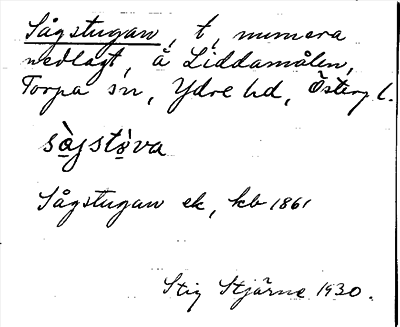 Sågstugan, t, numera
nedlagt, å Liddamålen,
Torpa sn, Ydre hd, Österg l.
sågstòva
Sågstugan ek, kb 1861
Stig Stjärne 1930.